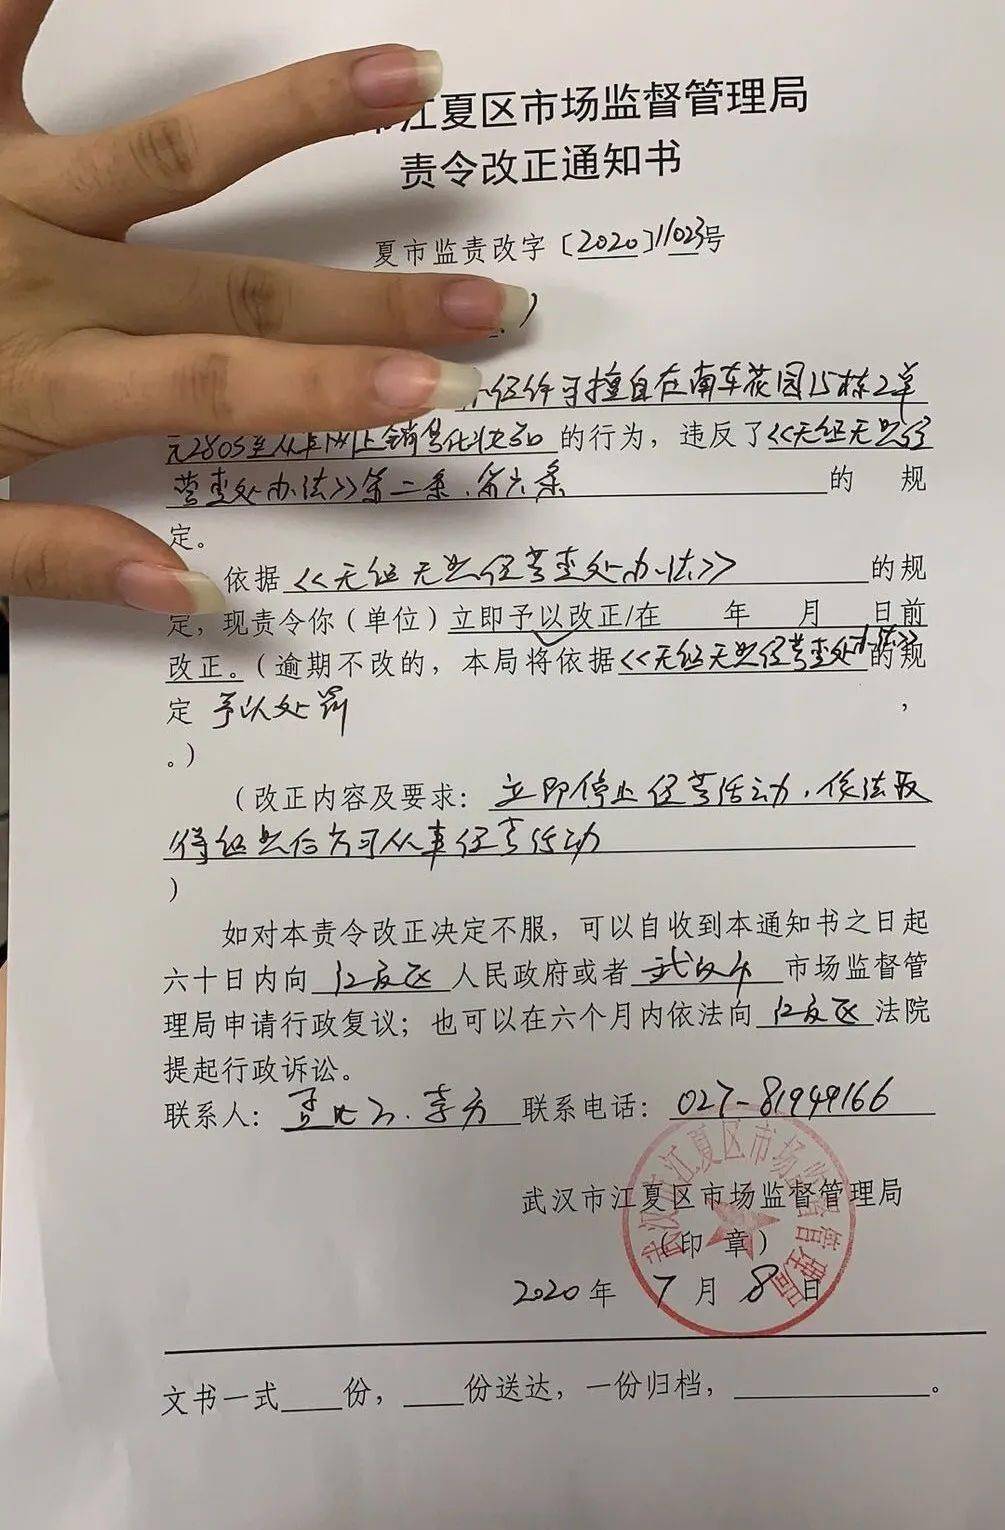 江夏区市场监督管理局
责令改正通知书
夏市监责改字〔2020〕11023号
经许可擅自在南车花园15栋2单
元2805室从事网上销售化妆品的行为，违反了《无证无照经
营查处办法》第二条、第六条的规
定。
依据《无证无照经营查处办法》的规
定，现责令你（单位）立即予以改正/在 年 月 日前
改正。（逾期不改的，本局将依据《无证无照经营查处办法》的规
定 予以处罚，
。）
（改正内容及要求：立即停止经营活动，依法取
得证照后方可从事经营活动
）
如对本责令改正决定不服，可以自收到本通知书之日起
六十日内向 江夏区 人民政府或者 武汉市 市场监督管
理局申请行政复议；也可以在六个月内依法向 江夏区 法院
提起行政诉讼。
联系人： 李方 联系电话：027-81949166
武汉市江夏区市场监督管理局
（印 章）
2020年 7月 8日
武汉市江夏区市场监督管理局
文书一式____份，____份送达，一份归档，__________。